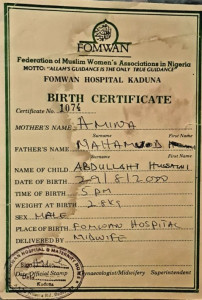 FOMWAN
Federation of Muslim Women's Associations in Nigeria
MOTTO: "ALLAH'S GUIDANCE IS THE ONLY TRUE GUIDANCE"
FOMWAN HOSPITAL KADUNA
BIRTH CERTIFICATE
Certificate No. 1074
MOTHER'S NAME AMINA
Surname First Name
FATHER'S NAME MAHAMUD
Surname First Name
NAME OF CHILD ABDULLAHI
DATE OF BIRTH 29/8/2000
TIME 5 PM
WEIGHT AT BIRTH 2.8kg
SEX MALE
PLACE OF BIRTH FOMWAN HOSPITAL
DELIVERED BY MIDWIFE
Official Stamp Gynaecologist/Midwifery Superintendent
Kaduna